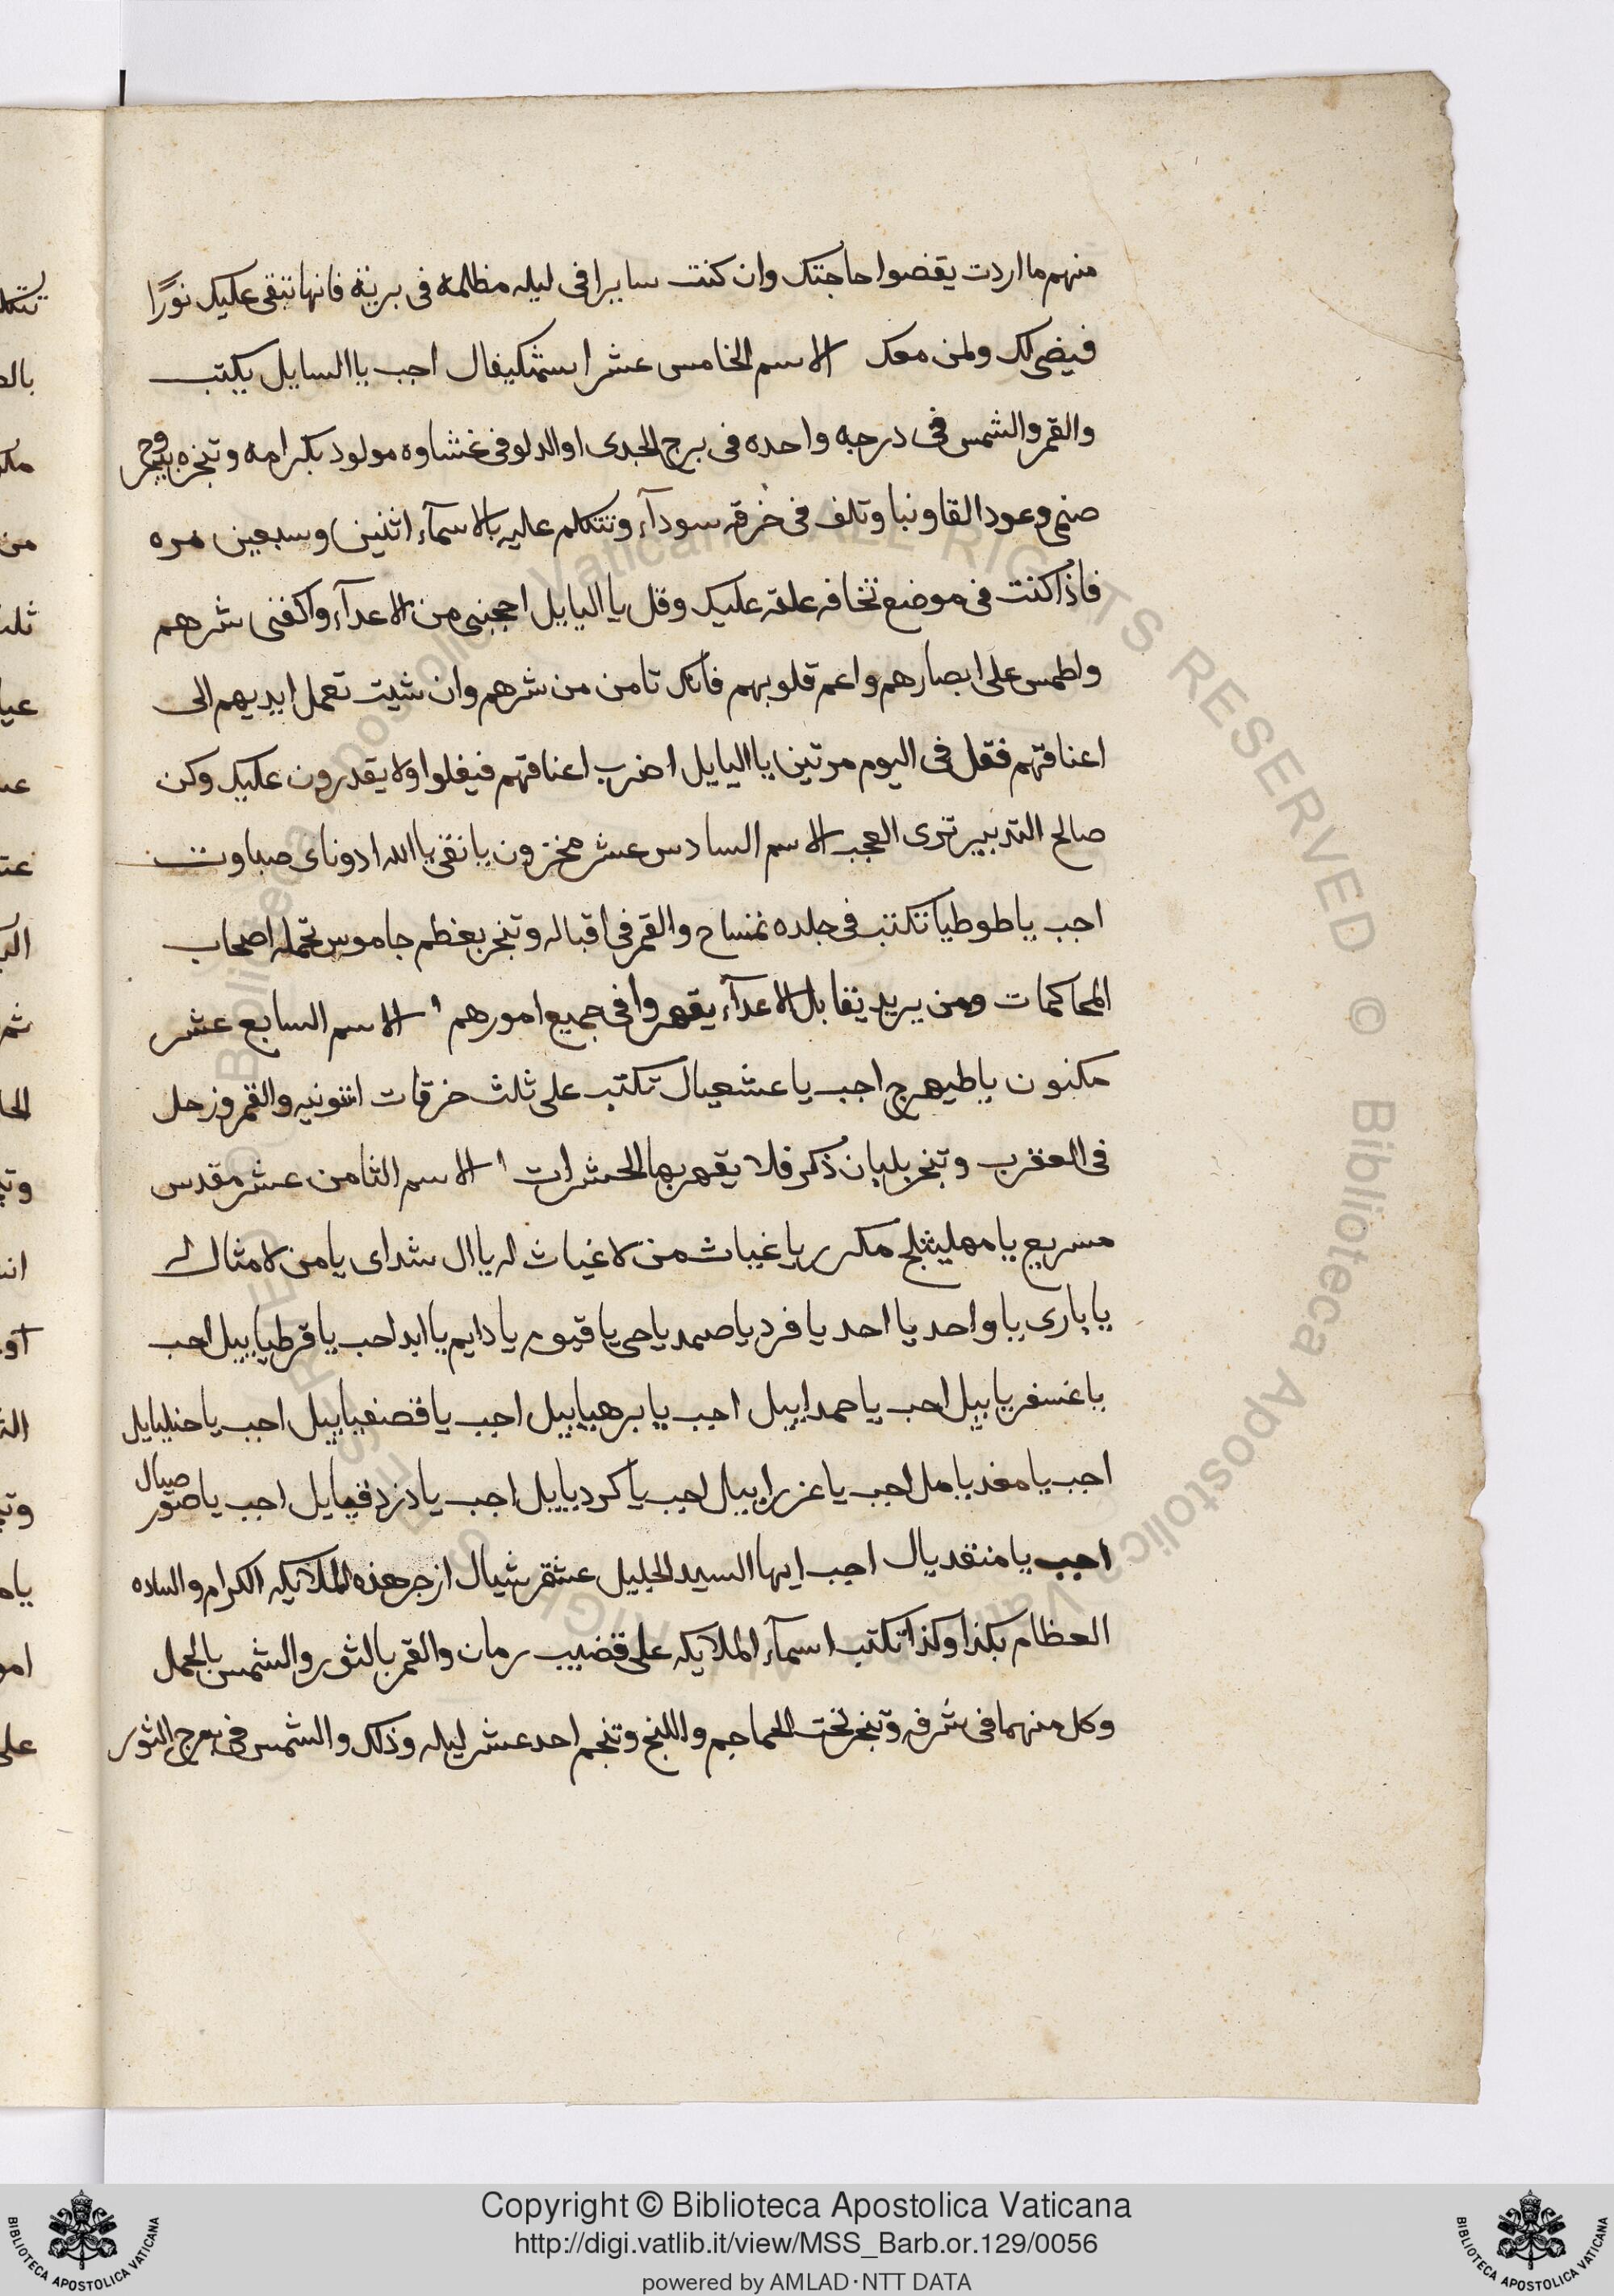 منهم ما اردت يقضوا حاجتك وان كنت سايرا فى ليله مظلمة فى برية فانها تبقى عليك نورًا
فيضى لك ولمن معك الاسم الخامس عشر اجب يا السايل يكتب
والقمر والشمس فى درجه واحده فى برج الجدى او الدلو فى غشاوه مولود بكرامه وتبخره
وعود وتلف فى خرقه سودآء وتتكلم عليه بالاسمآء اثنين وسبعين مره
فاذا كنت فى موضع تخافه علقه عليك وقل يا اليايل احجبنى من الاعدآء واكفنى شرهم
ولطمس على ابصارهم واعم قلوبهم فانك تامن من شرهم وان شيت تعمل ايديهم الى
اعناقهم فقل فى اليوم مرتين يا اليايل اضرب اعناقهم فيغلوا ولا يقدرون عليك وكن
صالح التدبير ترى العجب الاسم السادس عشر مخزون يا نقى يا الله ادوناى صباوت
اجب يا طوطيا تكتب فى جلده تمساح والقمر فى اقباله وتبخر بعظم جاموس تحمله اصحاب
المحاكمات ومن يريد يقابل الاعدآء يقهروا فى جميع امورهم الاسم السابع عشر
مكنون يا طيهرج اجب يا عشعيال تكتب على ثلث خرقات والقمر وزحل
فى العقرب وتبخر بلبان ذكر فلا يقهر بها الحشرات الاسم الثامن عشر مقدس
مسريع يا مهليثلج مكرر يا غياث من لا غياث له يا ال شداى يا من لا مثال له
يا بارى يا واحد يا احد يا فرد يا صمد يا حى يا قيوم يا دايم يا ابد اجب يا قرطياييل اجب
يا غسفرياييل اجب يا حمداييل اجب يا برهياييل اجب يا قصفياييل اجب يا
اجب يا اجب يا عزراييل اجب يا كردياييل اجب يا اجب يا
صيال
اجب يا منقديال اجب ايها السيد الجليل عشقرشيال ازجر هذه الملايكه الكرام والساده
العظام بكذا وكذا تكتب اسمآء الملايكه على قضيب رمان والقمر بالثور والشمس بالحمل
وكل منهما فى شرفه وتبخر تحت الجماجم واللنج وتنجم احد عشر ليله وذلك والشمس فى برج الثور
Copyright © Biblioteca Apostolica Vaticana
http://digi.vatlib.it/view/MSS_Barb.or.129/0056
powered by AMLAD·NTT DATA